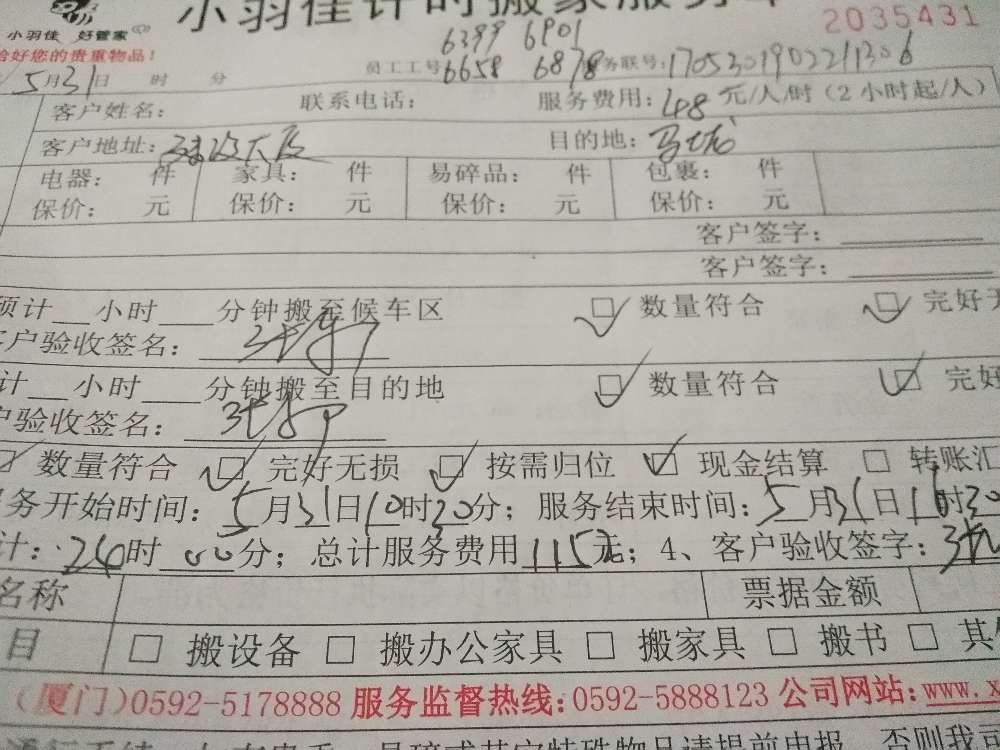 小羽佳计时搬家服务
2035431
小羽佳 好管家
恰好您的贵重物品！
6399 6901
员工工号 6658 6878 务联号：170530190221306
5月31日 时 分
客户姓名： 联系电话： 服务费用：48元/人/时（2小时起/人）
客户地址： 大厦 目的地：马垅
电器： 件 家具： 件 易碎品： 件 包裹： 件
保价： 元 保价： 元 保价： 元 保价： 元
客户签字：
客户签字：
预计__小时___分钟搬至候车区 数量符合 完好无
客户验收签名：
计__小时___分钟搬至目的地 数量符合 完好
户验收签名：
数量符合 完好无损 按需归位 现金结算 转账汇
服务开始时间：5月31日10时30分；服务结束时间：5月31日16时30
计：24时00分；总计服务费用115元；4、客户验收签字：
名称 票据金额
目 搬设备 搬办公家具 搬家具 搬书 其他
（厦门）0592-5178888 服务监督热线：0592-5888123 公司网站：www.x
易碎或其它特殊物品请提前申报，否则我司